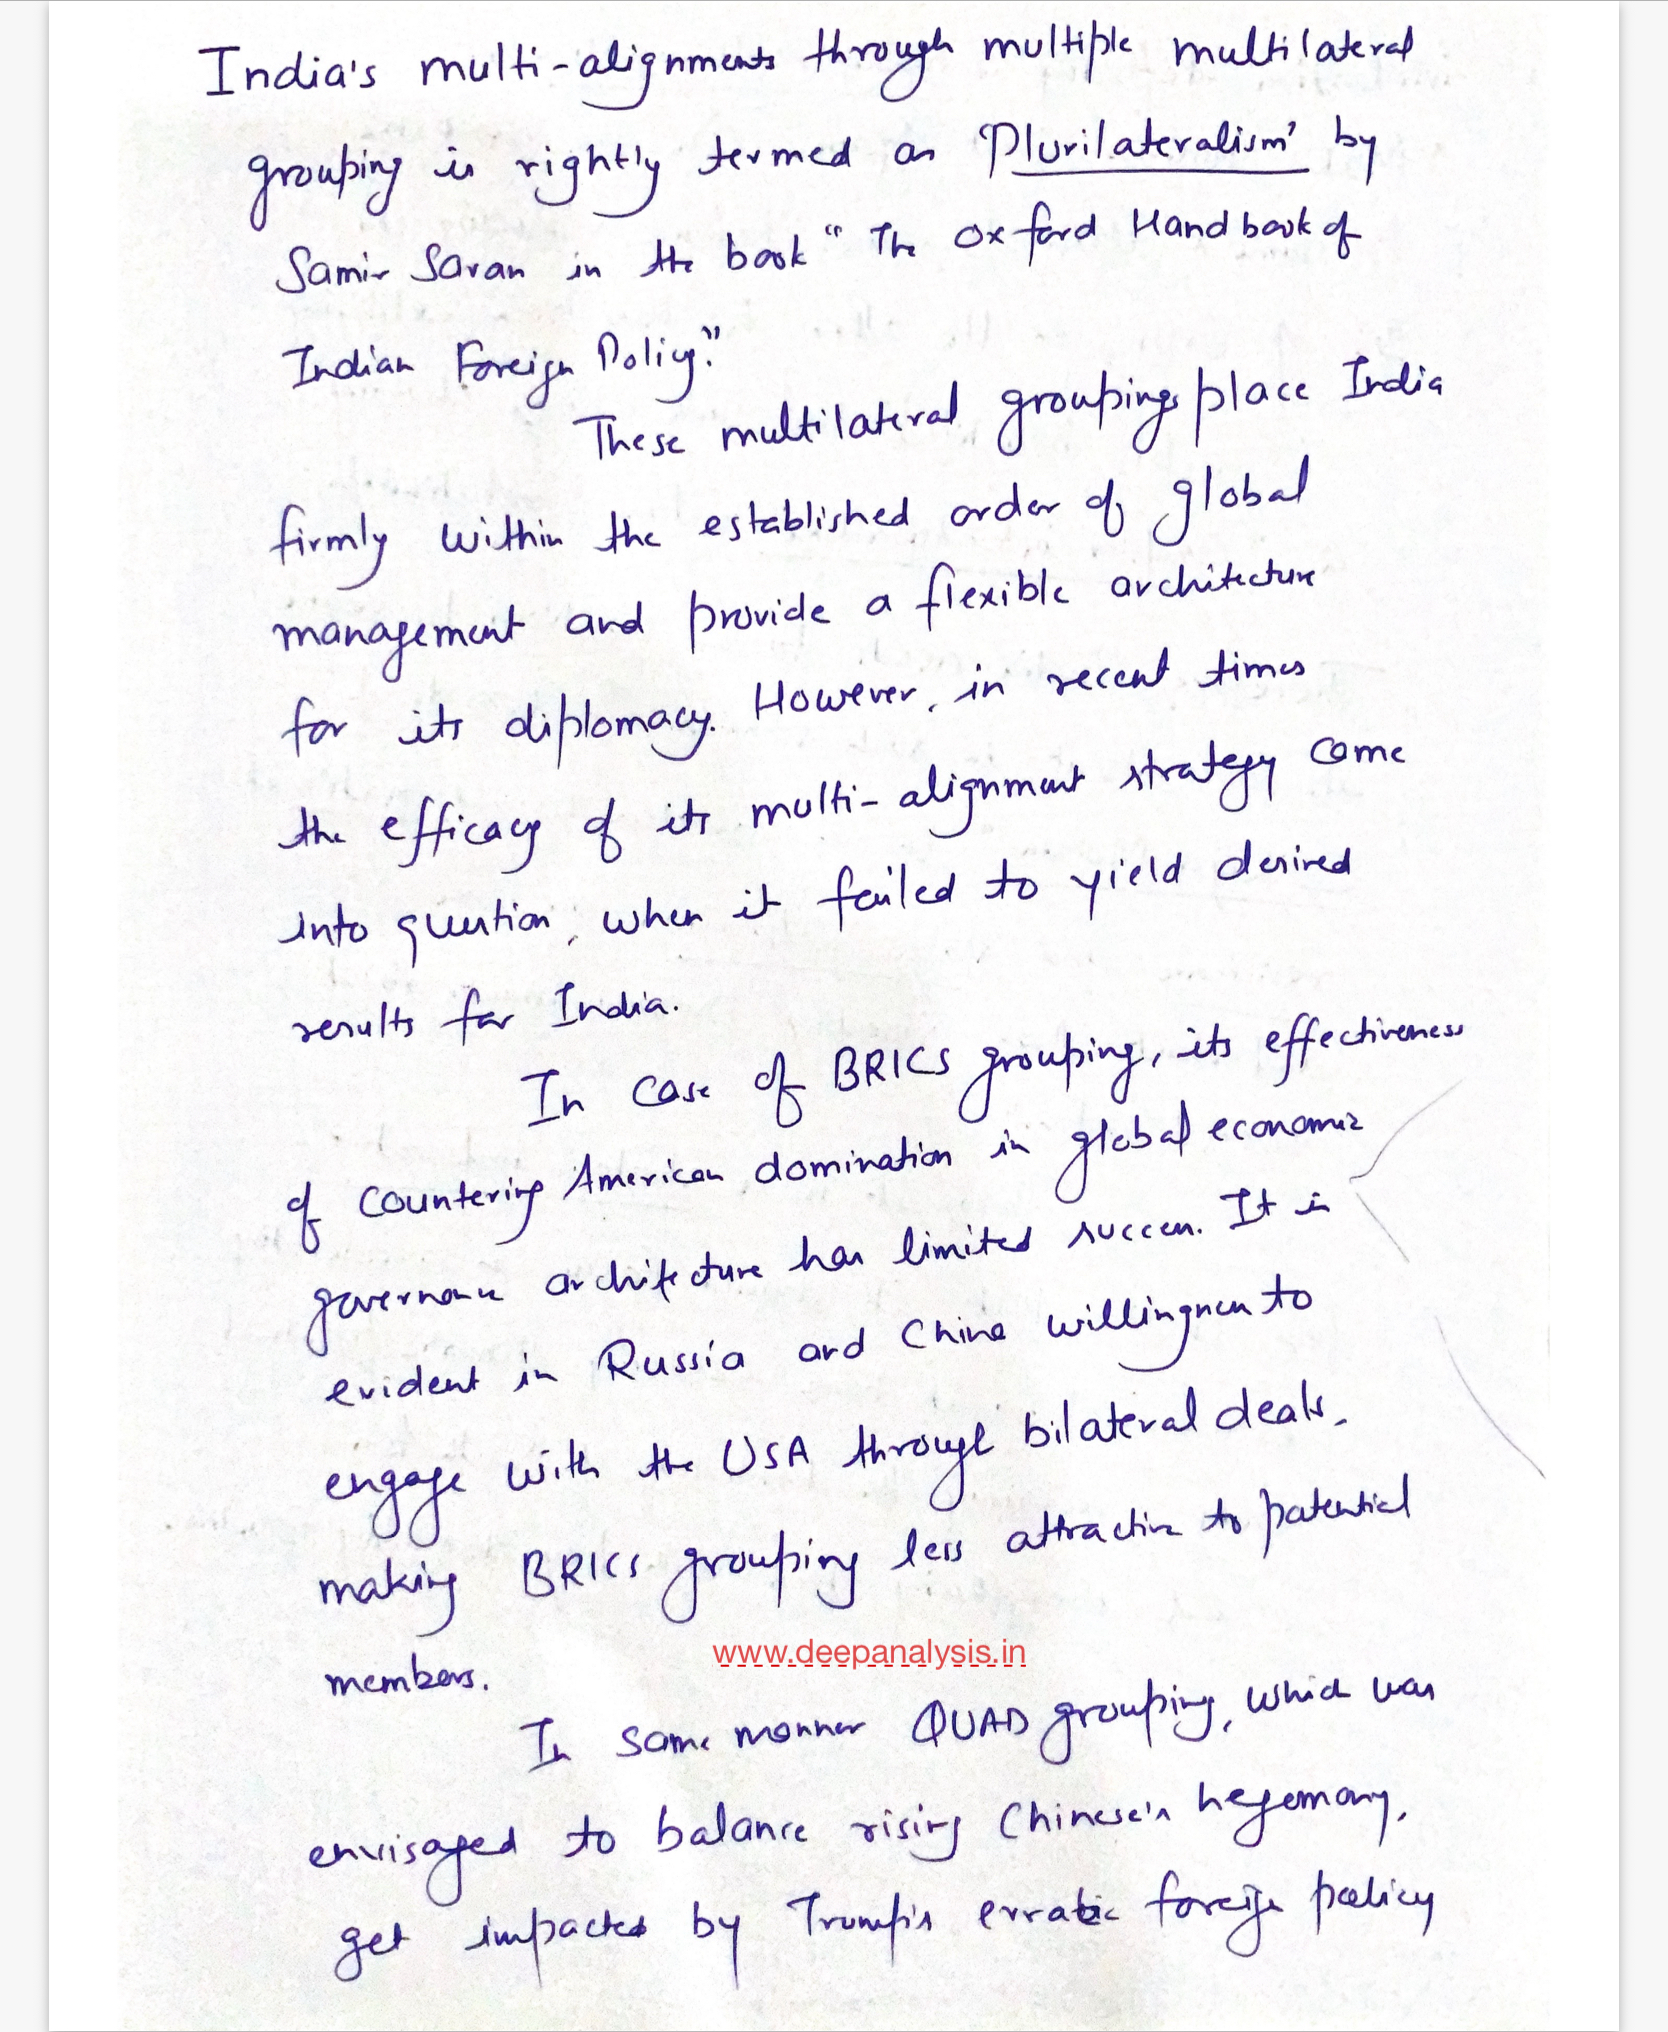 India's multi-alignments through multiple multilateral
grouping is rightly termed as 'Plurilateralism' by
Samir Saran in the book "The Oxford Handbook of
Indian Foreign Policy."
These multilateral groupings place India
firmly within the established order of global
management and provide a flexible architecture
for its diplomacy. However, in recent times
the efficacy of its multi-alignment strategy came
into question, when it failed to yield desired
results for India.
In case of BRICS grouping, its effectiveness
of countering American domination in global economic
governance architecture has limited success. It is
evident in Russia and China willingness to
engage with the USA through bilateral deals,
making BRICS grouping less attractive to potential
members.
www.deepanalysis.in
In same manner QUAD grouping, which was
envisaged to balance rising Chinese's hegemony,
get impacted by Trump's erratic foreign policy